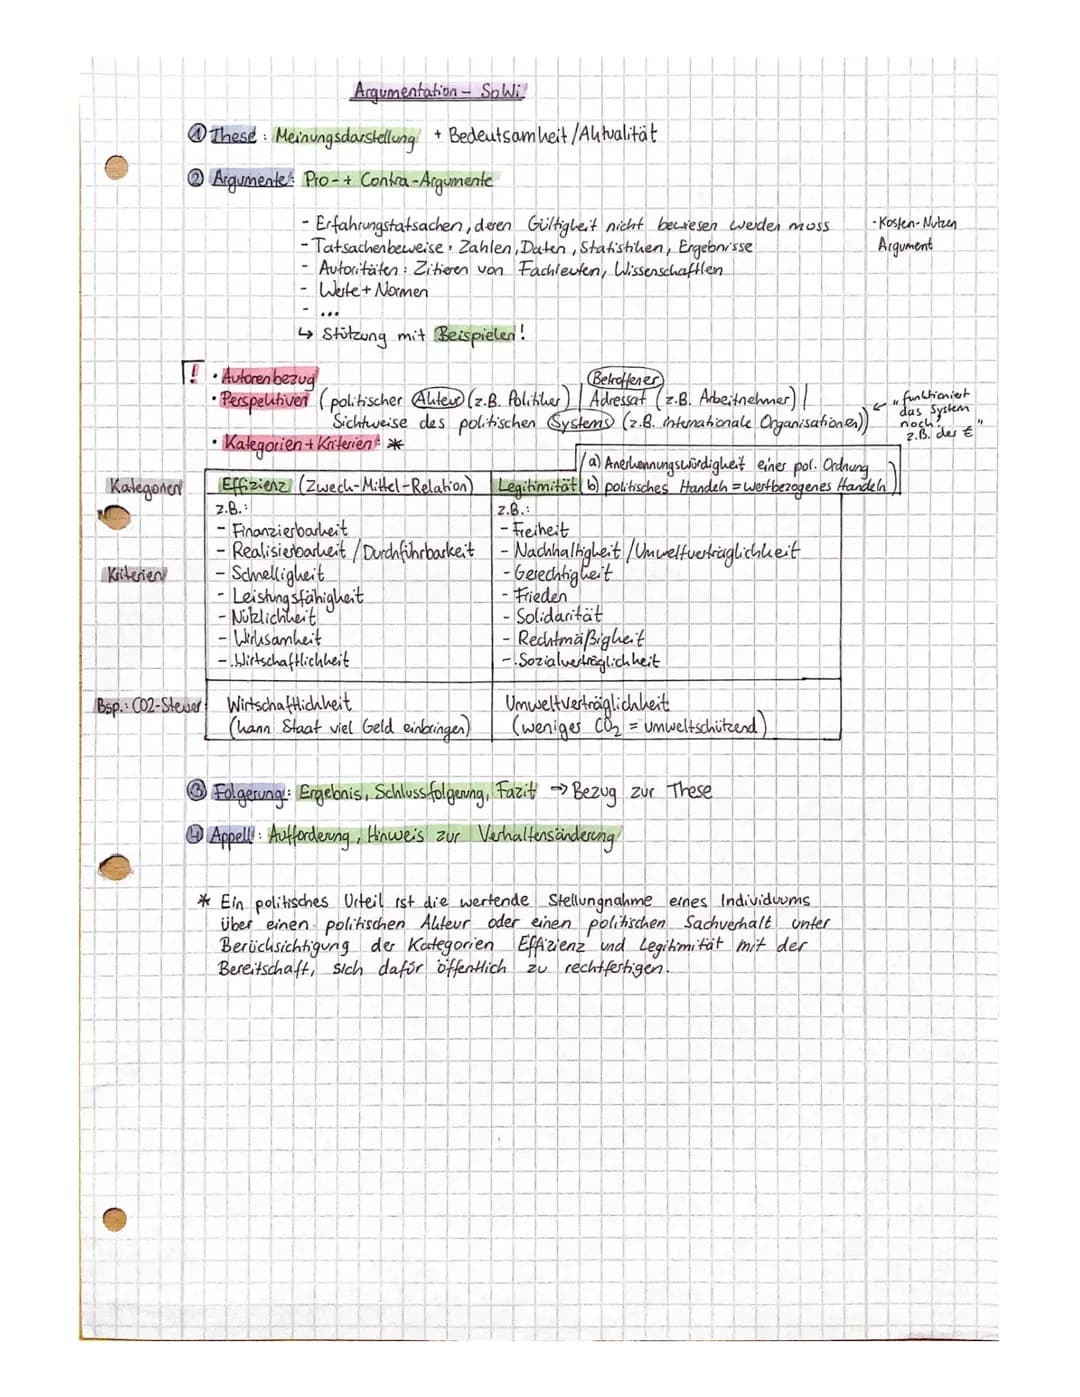 Argumentation - SoWi
① These: Meinungsdarstellung + Bedeutsamkeit/Aktualität
② Argumente: Pro- + Contra-Argumente
- Erfahrungstatsachen, deren Gültigkeit nicht bewiesen werden muss
- Kosten-Nutzen
Argument
- Tatsachenbeweise: Zahlen, Daten, Statistiken, Ergebnisse
- Autoritäten: Zitieren von Fachleuten, Wissenschaftlen
- Werte + Normen
- ...
↳ Stützung mit Beispielen!
! • Autorenbezug
Betroffener
• Perspektiven (politischer Akteur (z.B. Politiker) | Adressat (z.B. Arbeitnehmer) |
Sichtweise des politischen Systems (z.B. internationale Organisationen))
← "funktioniert
das System
noch?"
z.B. der €
• Kategorien + Kriterien *
Kategorien
Effizienz (Zweck-Mittel-Relation)
Legitimität
(a) Anerkennungswürdigkeit einer pol. Ordnung
b) politisches Handeln = wertbezogenes Handeln)
Kriterien
z.B.:
- Finanzierbarkeit
- Realisierbarkeit / Durchführbarkeit
- Schnelligkeit
- Leistungsfähigkeit
- Nützlichkeit
- Wirksamkeit
- Wirtschaftlichkeit
z.B.:
- Freiheit
- Nachhaltigkeit / Umweltverträglichkeit
- Gerechtigkeit
- Frieden
- Solidarität
- Rechtmäßigkeit
- Sozialverträglichkeit
Bsp.: CO2-Steuer
Wirtschaftlichkeit
(kann Staat viel Geld einbringen)
Umweltverträglichkeit
(weniges CO₂ = umweltschützend)
③ Folgerung: Ergebnis, Schlussfolgerung, Fazit → Bezug zur These
④ Appell: Aufforderung, Hinweis zur Verhaltensänderung
* Ein politisches Urteil ist die wertende Stellungnahme eines Individuums
über einen politischen Akteur oder einen politischen Sachverhalt unter
Berücksichtigung der Kategorien Effizienz und Legitimität mit der
Bereitschaft, sich dafür öffentlich zu rechtfertigen.